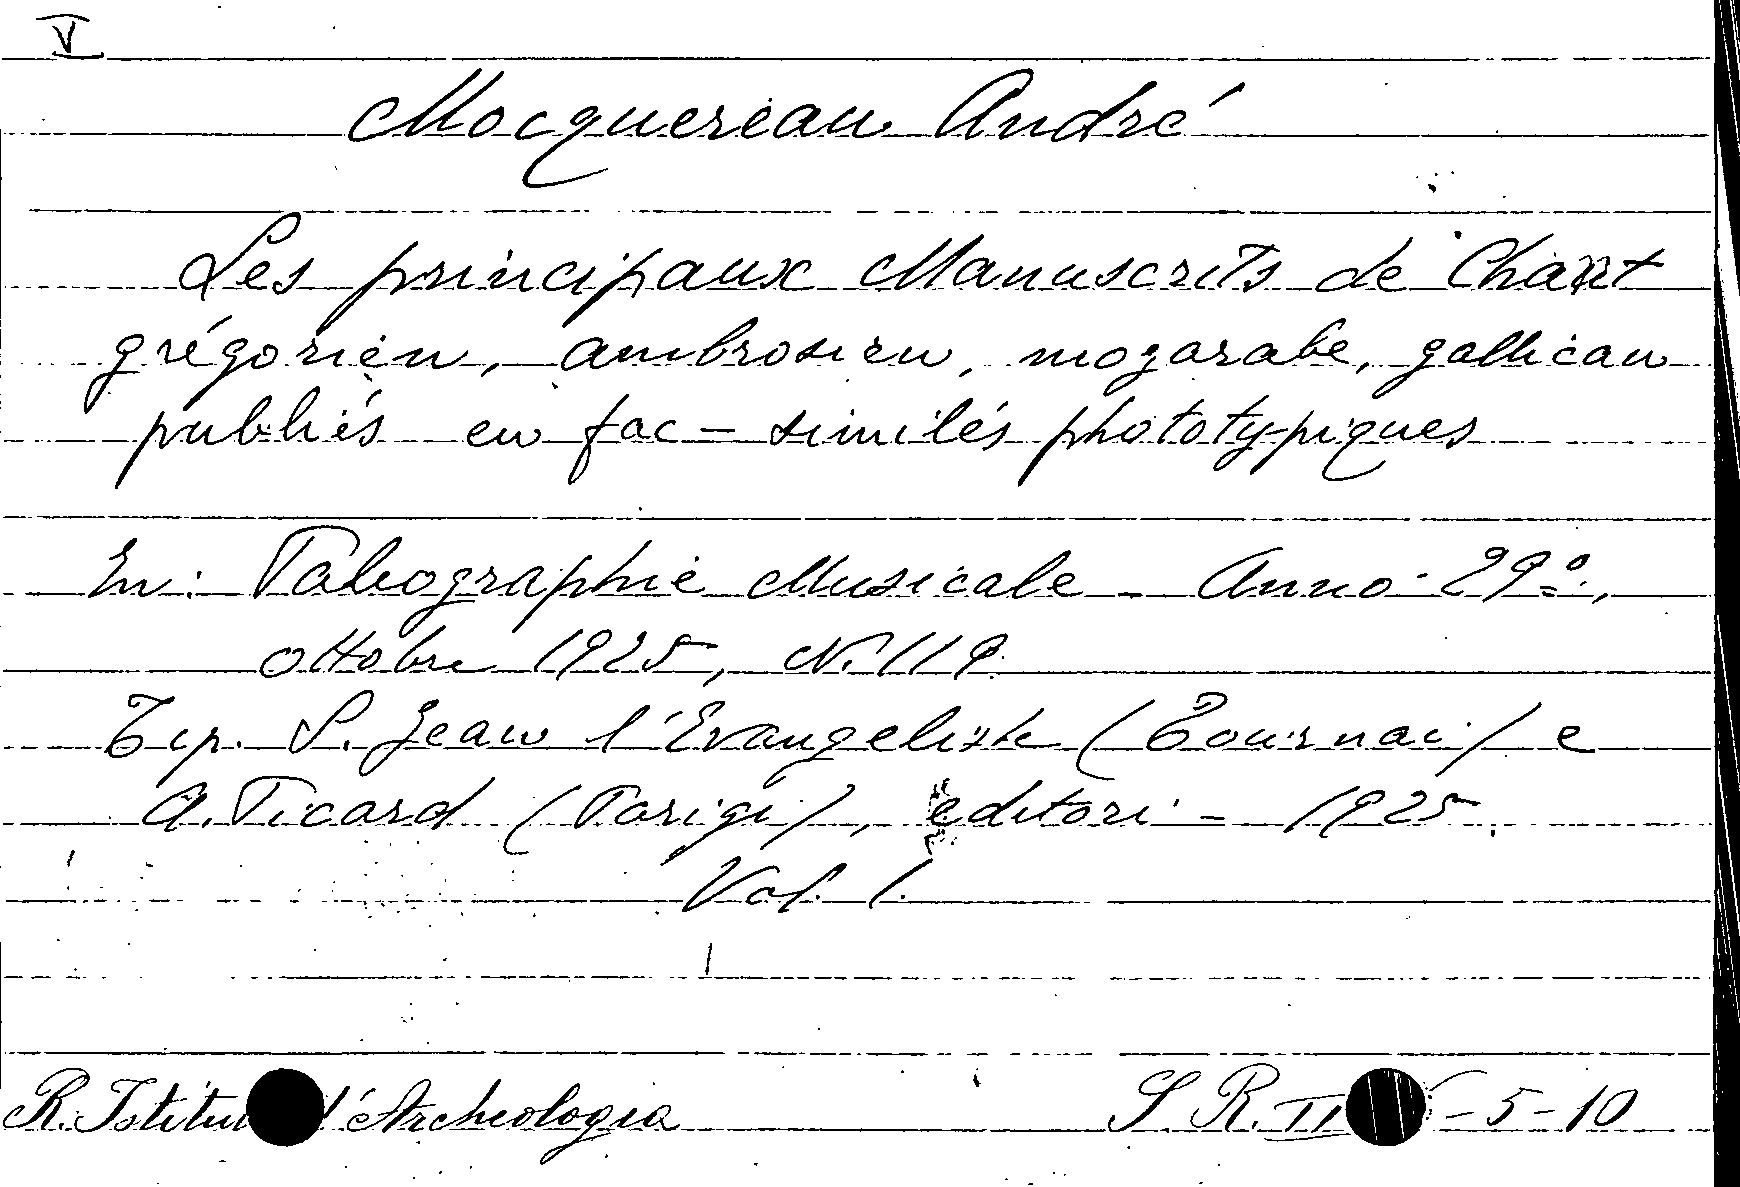 V
Mocquereau André
Les principaux Manuscrits de Chant
grégorien, ambrosien, mozarabe, gallican
publiés en fac-similés phototypiques
In: Paléographie Musicale - Anno 29º,
ottobre 1925, N. 119.
Tip. S. Jean l'Evangeliste (Tournai) e
A. Picard (Parigi), editori - 1925.
Vol. 1.
R. Istitu d'Archeologia
S. R. - 5 - 10